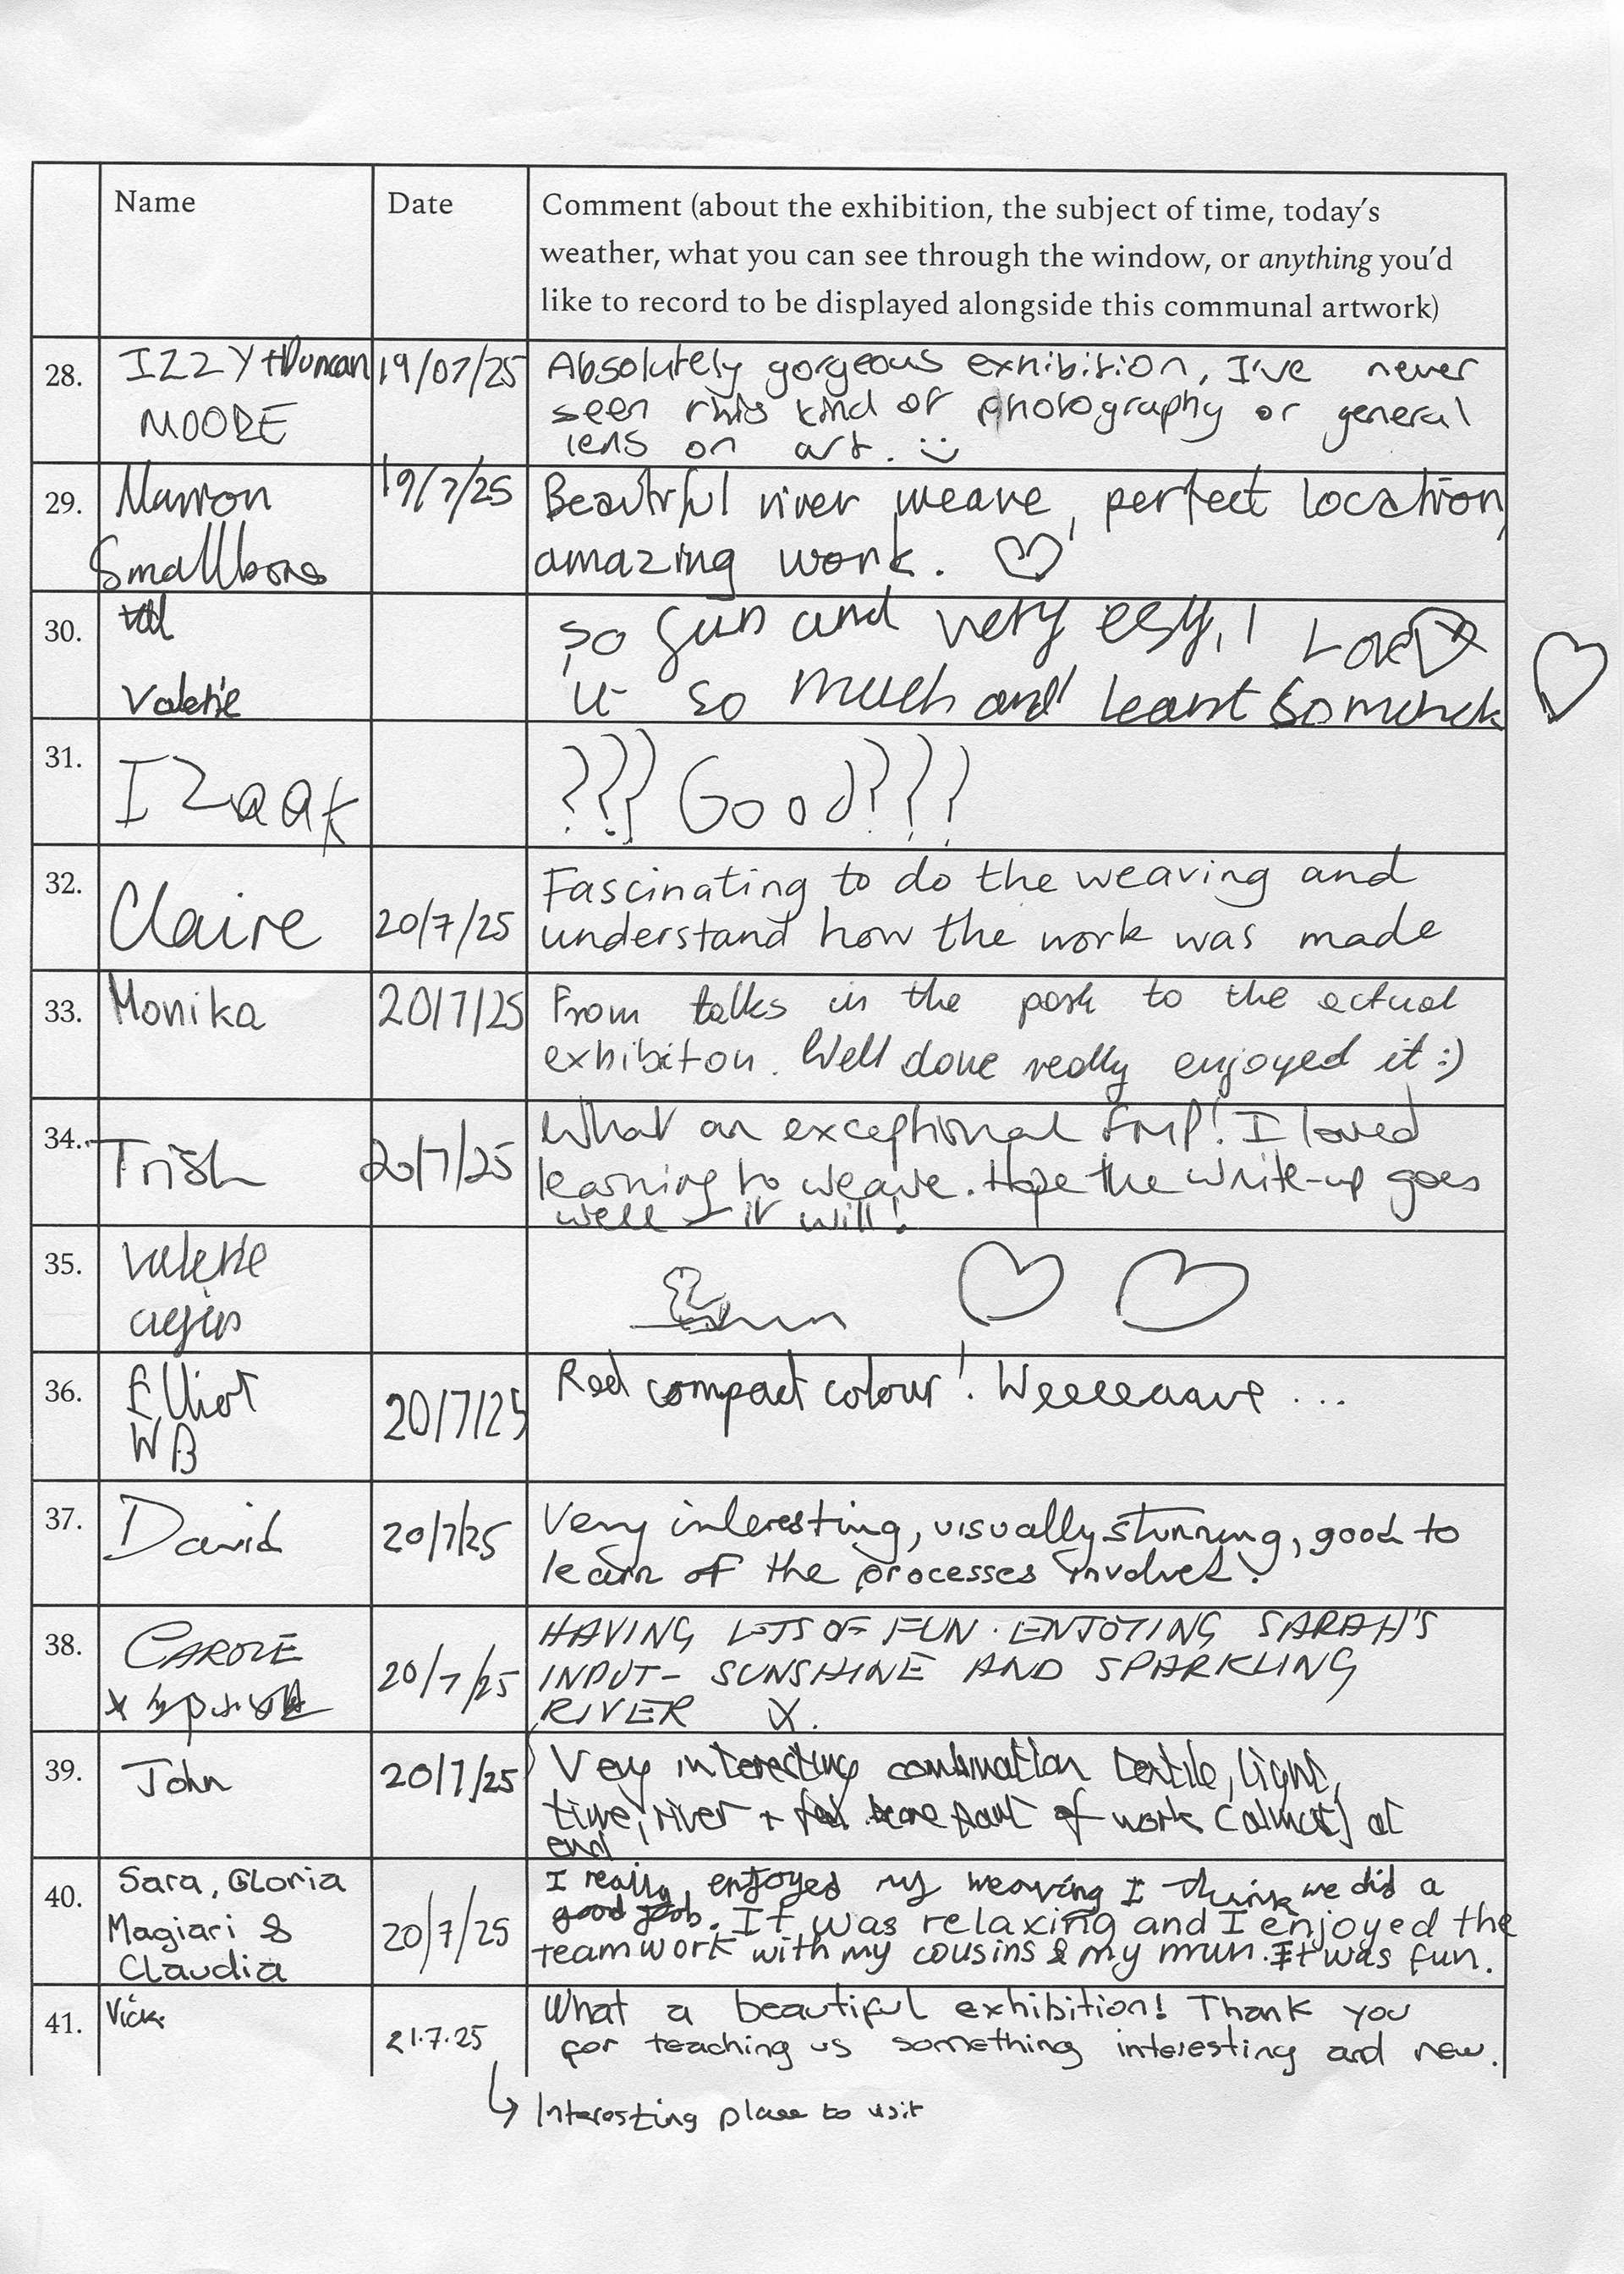 Name
Date
Comment (about the exhibition, the subject of time, today's
weather, what you can see through the window, or anything you'd
like to record to be displayed alongside this communal artwork)
28.
IZZY + Duncan
MOORE
19/07/25
Absolutely gorgeous exhibition, I've never
seen this kind of photography or general
lens on art. :)
29.
Smallbone
19/7/25
Beautiful river weave, perfect location,
amazing work. ♡
30.
Valerie
so fun and very esy, I Love
it so much and leant so much
31.
IZaak
??? Good???
32.
Claire
20/7/25
Fascinating to do the weaving and
understand how the work was made
33.
Monika
20/7/25
From talks in the park to the actual
exhibiton. Well done really enjoyed it :)
34.
Trish
20/7/25
What an exceptional FMP! I loved
learning to weave. Hope the write-up goes
well - it will!
35.
Valerie
36.
Elliot
WB
20/7/25
Red compact colour! Weeeeaave ...
37.
David
20/7/25
Very interesting, visually stunning, good to
learn of the processes involved.
38.
CAROLE
20/7/25
HAVING LOTS OF FUN. ENJOYING SARAH'S
INPUT - SUNSHINE AND SPARKLING
RIVER X.
39.
John
20/7/25
Very interesting combination textile, light,
time, river + part of work (almost) at
end
40.
Sara, Gloria
Magiari &
Claudia
20/7/25
I really enjoyed my weaving I think we did a
good job. It was relaxing and I enjoyed the
teamwork with my cousins & my mum. It was fun.
41.
Vicki
21.7.25
What a beautiful exhibition! Thank you
for teaching us something interesting and new.
↳ Interesting place to visit